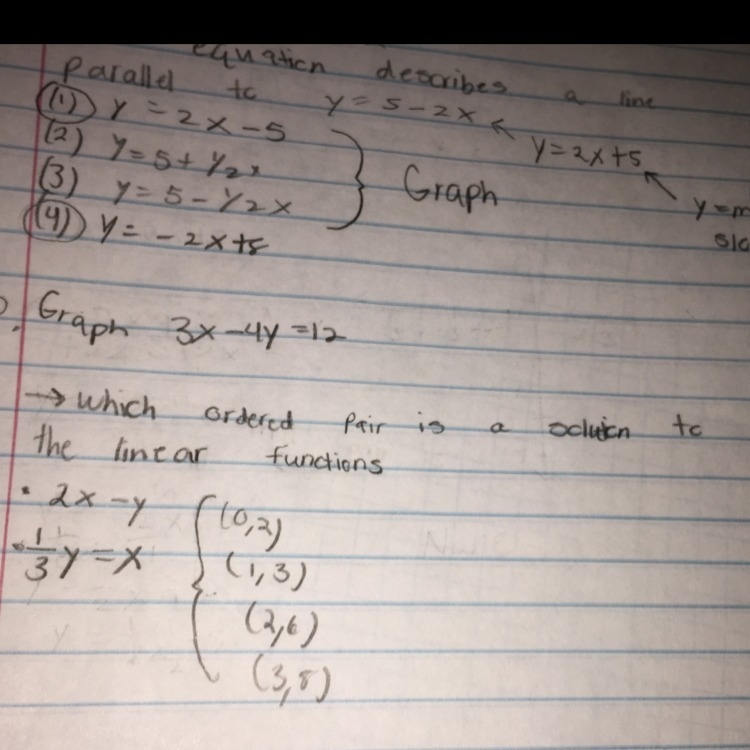 equation describes a line
parallel to y = 5 - 2x ← y = 2x + 5 ← y = m
(1) y = 2x - 5
(2) y = 5 + 1/2x
(3) y = 5 - 1/2x
(4) y = - 2x + 5
Graph
Graph 3x - 4y = 12
→ which ordered pair is a solution to
the linear functions
• 2x - y
• 1/3 y = x
(0,2)
(1,3)
(2,6)
(3,8)